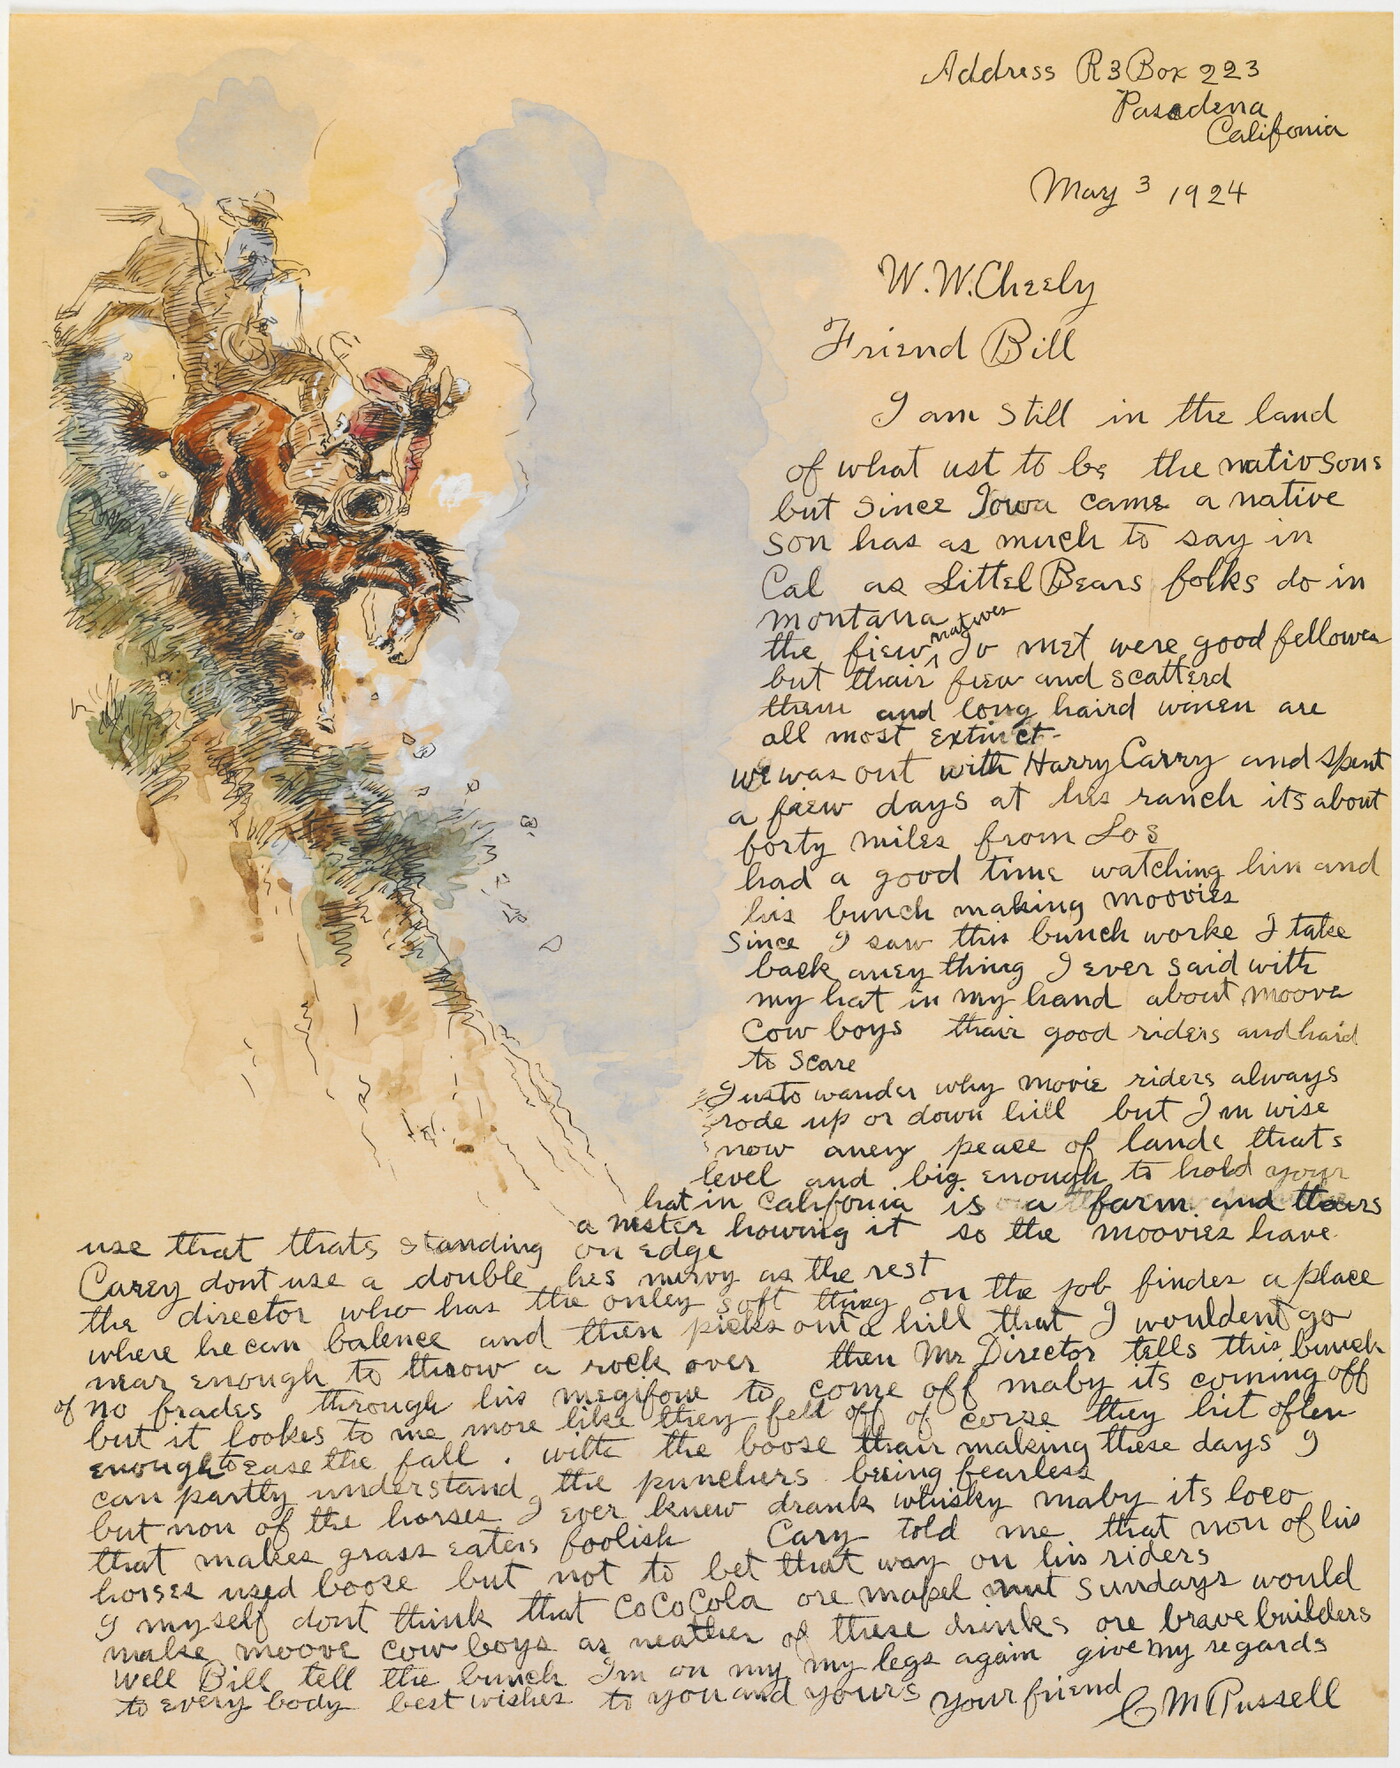 Address R3 Box 223
Pasadena
Califonia
May 3 1924
W.W. Cheely
Friend Bill
I am still in the land
of what ust to be the nativ sons
but since Iowa came a native
son has as much to say in
Cal as Littel Bears folks do in
montana
the fiew natives Iv met were good fellowes
but thair fiew and scatterd
them and long haird wimen are
all most extinct-
we was out with Harry Carry and spent
a fiew days at his ranch its about
forty miles from Los
had a good time watching him and
his bunch making moovies
Since I saw this bunch worke I take
back aney thing I ever said with
my hat in my hand about moove
Cow boys thair good riders and haid
to scare
I usto wander why movie riders always
rode up or down hill but Im wise
now aney peace of lande thats
level and big enough to hold your
hat in Califonia is a farm and thairs
a nester howing it so the moovies have
use that thats standing on edge
Carey dont use a double hes nurvy as the rest
the director who has the onley soft thing on the job findes a place
where he can balence and then picks out a hill that I wouldent go
near enough to throw a rock over then Mr Director tells this bunch
of no frades through his megifone to come off maby its coming off
but it lookes to me more like they fell off of corse they hit often
enough to ease the fall. with the boose thair making these days I
can partly understand the punchers being fearless
but non of the horses I ever knew drank whisky maby its loco
that makes grass eaters foolish Cary told me that non of his
horses used booze but not to bet that way on his riders
I myself dont think that CoCoCola ore mapel nut Sundays would
make moove cow boys as neather of these drinks ore brave builders
Well Bill tell the bunch Im on my my legs again give my regards
to every body best wishes to you and yours your friend
C M Russell